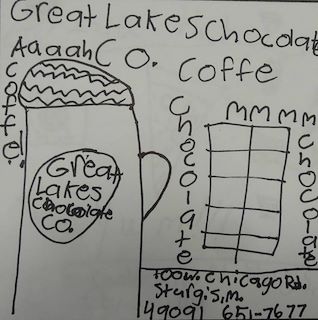 Great Lakes Chocolate
Co.
Aaaah
Coffe!
Great
Lakes
Chocolate
Co.
Coffe
Chocolate
MMMM
Chocolate
100 W. Chicago Rd.
Sturgis, M.
49091 651-7677